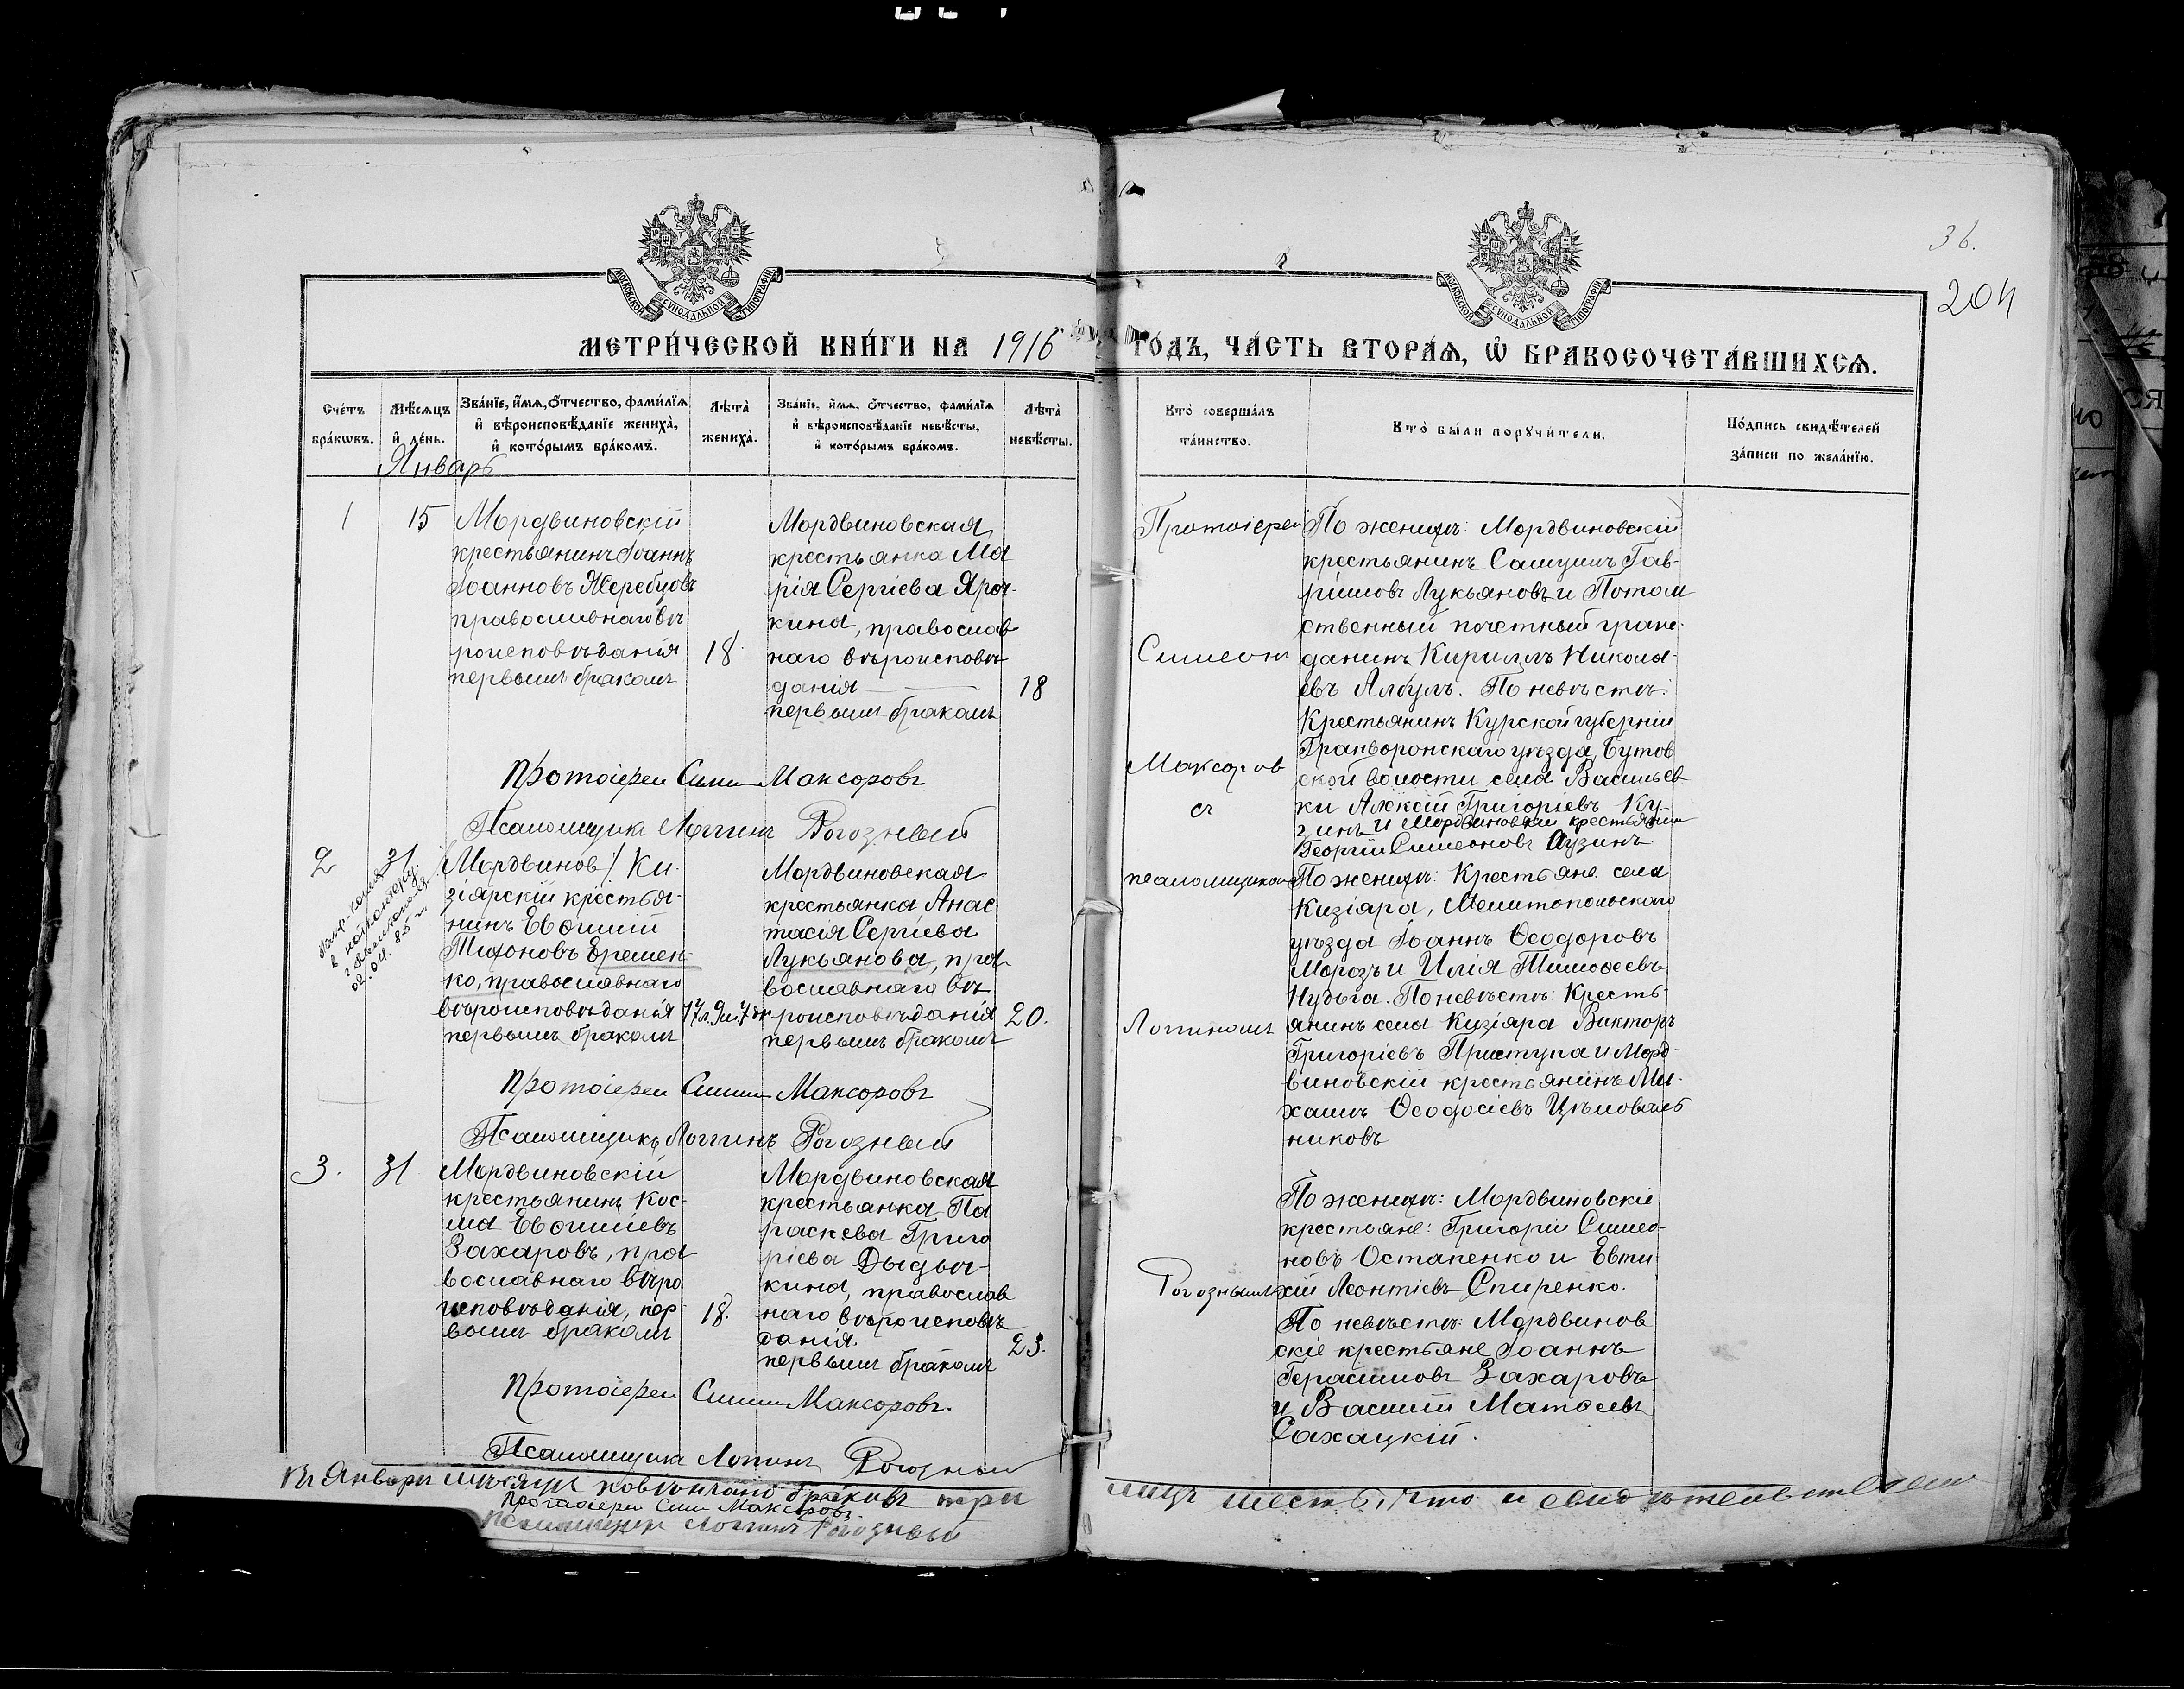 36.
204
МОСКОВСКОЙ СѴНОДАЛЬНОЙ ТИПОГРАФІИ
МОСКОВСКОЙ СѴНОДАЛЬНОЙ ТИПОГРАФІИ
МЕТРИ́ЧЕСКОЙ КНИ́ГИ НА 1916 ГО́ДЪ, ЧА́СТЬ ВТОРА́Я, Ѿ БРАКОСОЧЕТА́ВШИХСЯ.
Сче́тъ бра́кѡвъ.
Мѣ́сяцъ и҆ де́нь.
Зва́нїе, и҆́мя, ѻ҆́тчество, фами́лїя и҆ вѣроисповѣ́данїе жениха̀, и҆ кото́рымъ бра́комъ.
Лѣта̀ жениха̀.
Зва́нїе, и҆́мя, ѻ҆́тчество, фами́лїя и҆ вѣроисповѣ́данїе невѣ́сты, и҆ кото́рымъ бра́комъ.
Лѣта̀ невѣ́сты.
Кто̀ соверша́лъ та́инство.
Кто̀ бы́ли порꙋчи́тели.
По́дпись свидѣ́телей за́писи по жела́нїю.
Январь
1
15
Мордвиновскій
крестьянинъ Іоаннъ
Іоанновъ Жеребцовъ
православнаго вѣ
роисповѣданія
первымъ бракомъ
18
Мордвиновская
крестьянка Ма
рія Сергіева Яроч-
кина, православ
наго вѣроисповѣ
данія
первымъ бракомъ
18
Протоіерей
Симеонъ
Максоровъ
съ
псаломщикомъ
Логгиномъ
Рогознымъ
По женихѣ: Мордвиновскій
крестьянинъ Самуилъ Гав-
ріиловъ Лукьяновъ и Потом
ственный почетный граж-
данинъ Кириллъ Никола-
евъ Албулъ. По невѣстѣ:
Крестьянинъ Курской губерніи
Грайворонскаго уѣзда, Бутов
ской волости, села Васильев
ки Алексій Григоріевъ Ку-
зинъ и Мордвиновскій крестьянин
Георгій Симеоновъ
Протоіерей Симеонъ Максоровъ
Псаломщикъ Логгинъ Рогозный
2
31
02.04.85 г.
Мордвинов / Ки-
зіярскій крестья-
нинъ Евѳимій
Тихоновъ Еремен-
ко, православнаго
вѣроисповѣданія
первымъ бракомъ
17 л. 9 м. 7 дн
Мордвиновская
крестьянка Анас
тасія Сергіева
Лукьянова, пра
вославнаго вѣ
роисповѣданія
первымъ бракомъ
20.
По женихѣ: Крестьяне села
Кизіяра, Мелитопольскаго
уѣзда Іоаннъ Ѳеодоровъ
Морозъ и Илія Тимоѳеевъ
Нудьга. По невѣстѣ: Кресть-
янинъ села Кизіяра Викторъ
Григоріевъ Приступа и Морд-
виновскій крестьянинъ Ми-
хаилъ Ѳеодосіевъ Цѣловаль
никовъ
Протоіерей Симеонъ Максоровъ
Псаломщикъ Логгинъ Рогозный
3.
31
Мордвиновскій
крестьянинъ Кос-
ма Евѳиміевъ
Захаровъ, пра
вославнаго вѣро
исповѣданія, пер-
вымъ бракомъ
18.
Мордвиновская
крестьянка Па
раскева Григо
ріева Дыдыч-
кина, православ
наго вѣроисповѣ
данія.
первымъ бракомъ
23.
По женихѣ: Мордвиновскіе
крестьяне: Григорій Симео-
новъ Остапенко и Евти-
хій Леонтіевъ Спиренко.
По невѣстѣ: Мордвинов
скіе крестьяне Іоаннъ
Герасимовъ Захаровъ
и Василій Матѳеевъ
Сахацкій.
Протоіерей Симеонъ Максоровъ.
Псаломщикъ Логгинъ Рогозный
Въ Январѣ мѣсяцѣ повѣнчано браковъ три лицъ шесть, что и свидѣтельствуемъ
Протоіерей Симеонъ Максоровъ.
Псаломщикъ Логгинъ Рогозный